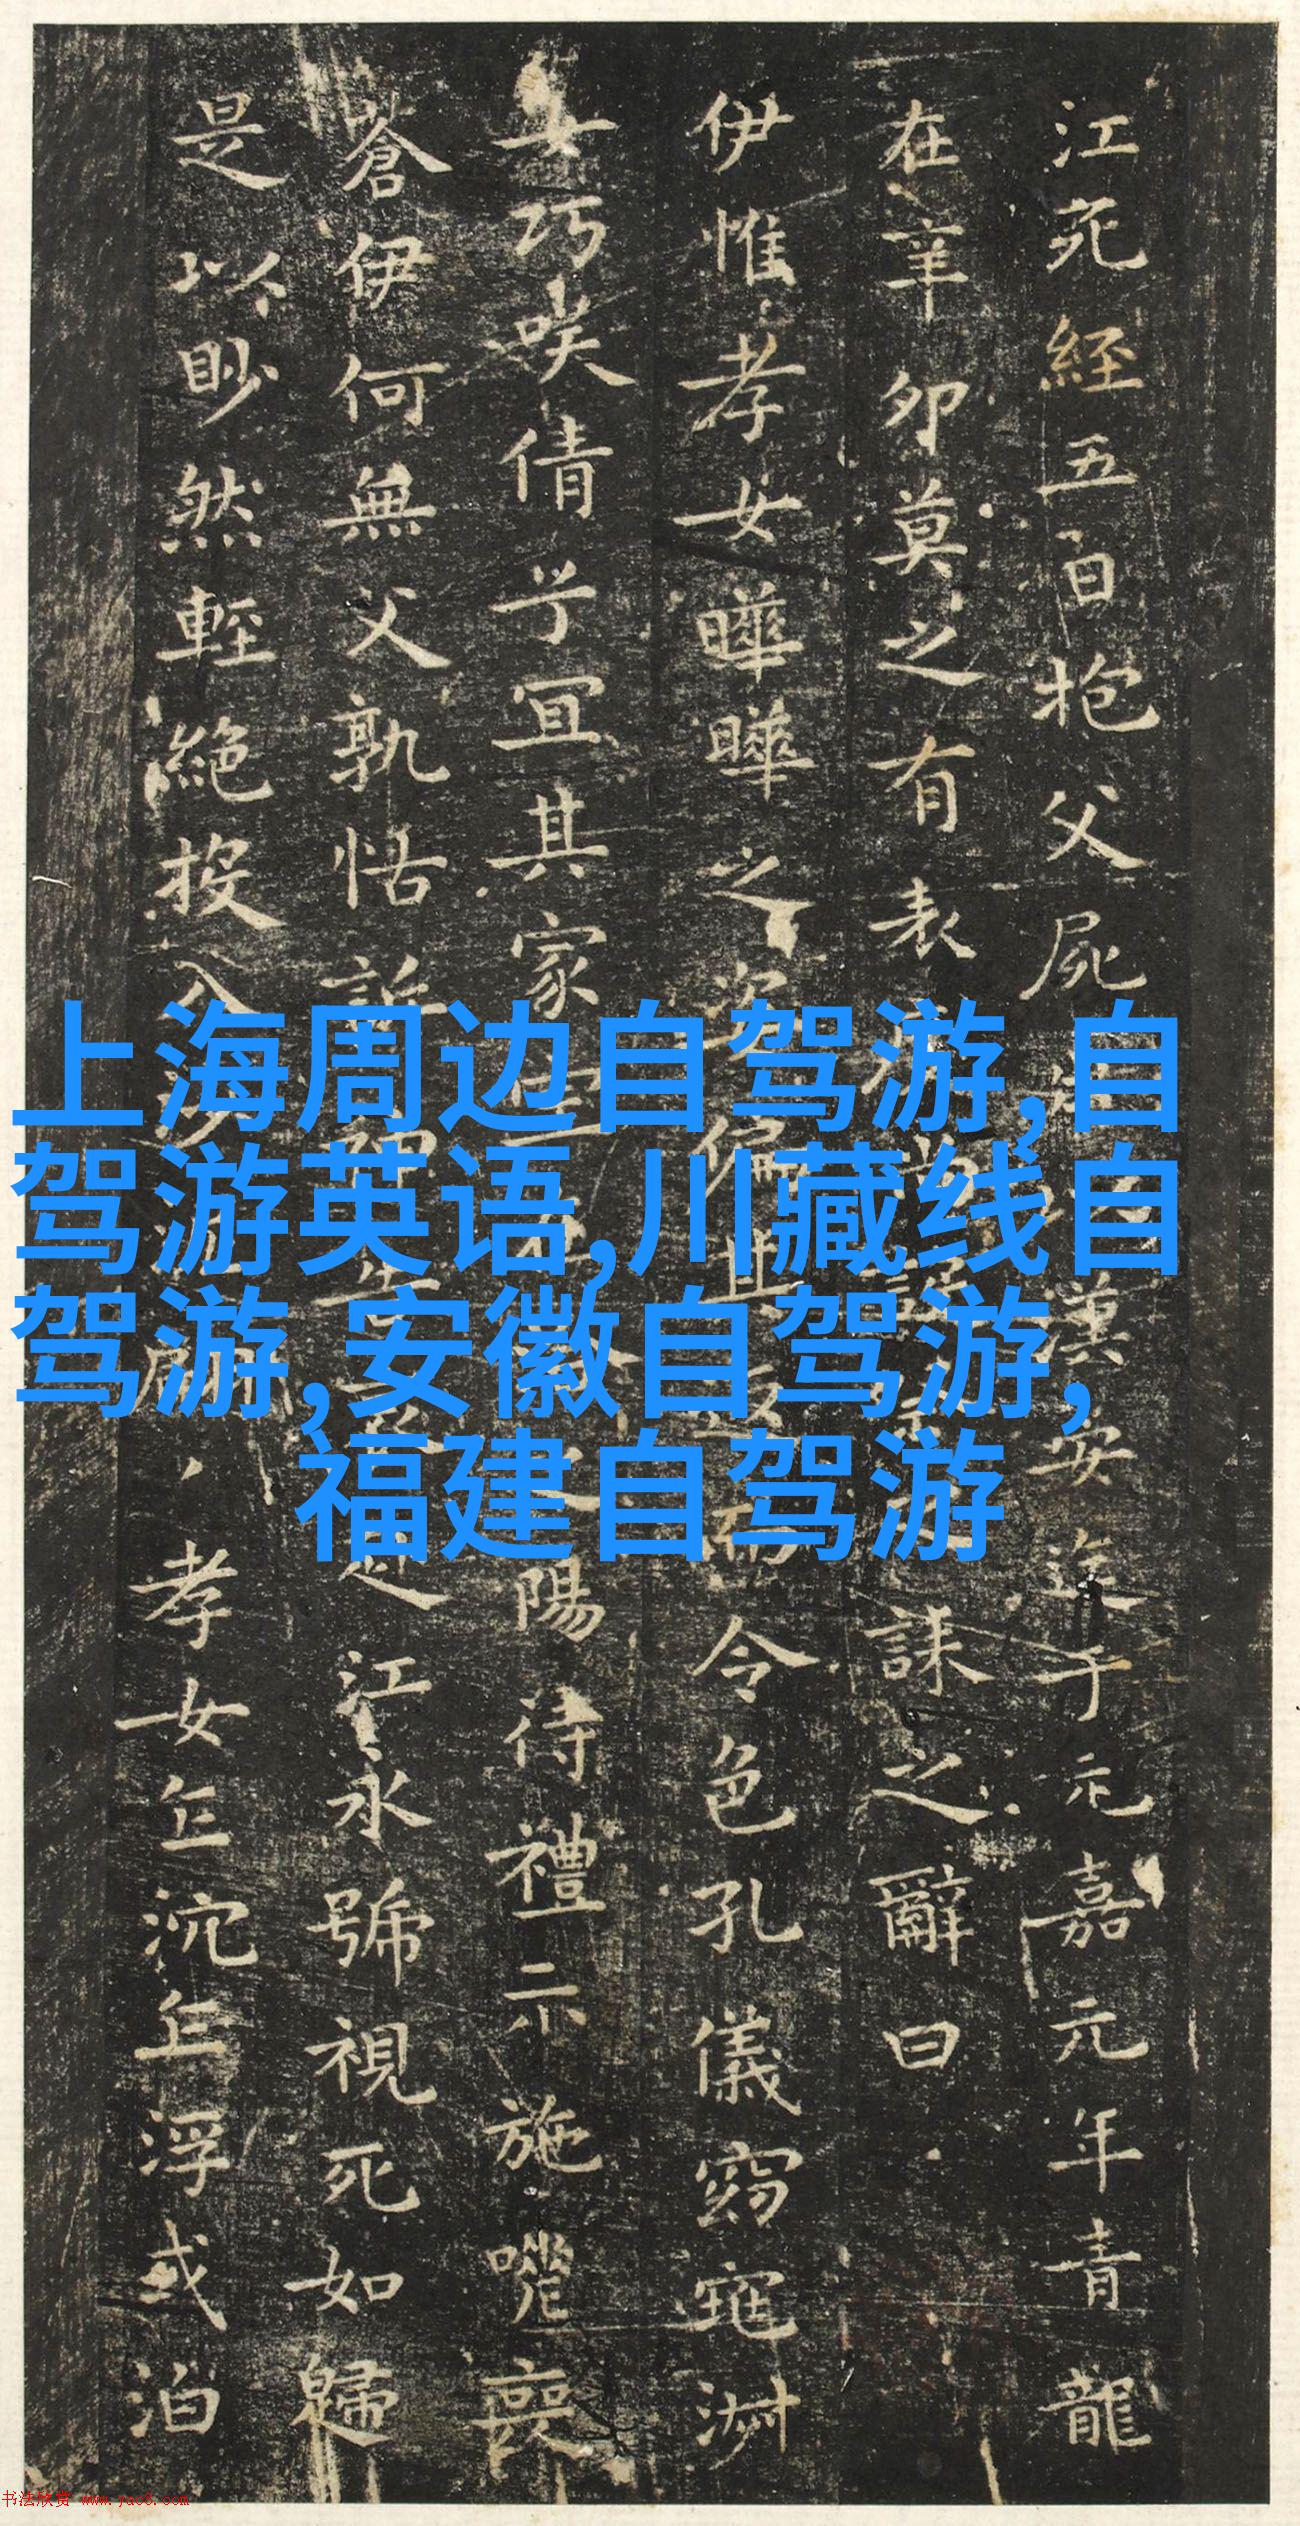 江死經五日抱父屍
漢安迄于元嘉元年青龍
在辛卯莫之有表
誄之辭曰
伊惟孝女曄曄之姿偏其
而令色孔儀窈窕淑
女巧咲倩兮宜其家
陽待禮未施嗟喪
蒼伊何無父孰怙訴
江永號視死如歸
是以眇然輕絕投入
孝女乍沉乍浮或泊
上海周边自驾游,自
驾游英语,川藏线自
驾游,安徽自驾游,
福建自驾游
书法欣赏 www.yac8.com